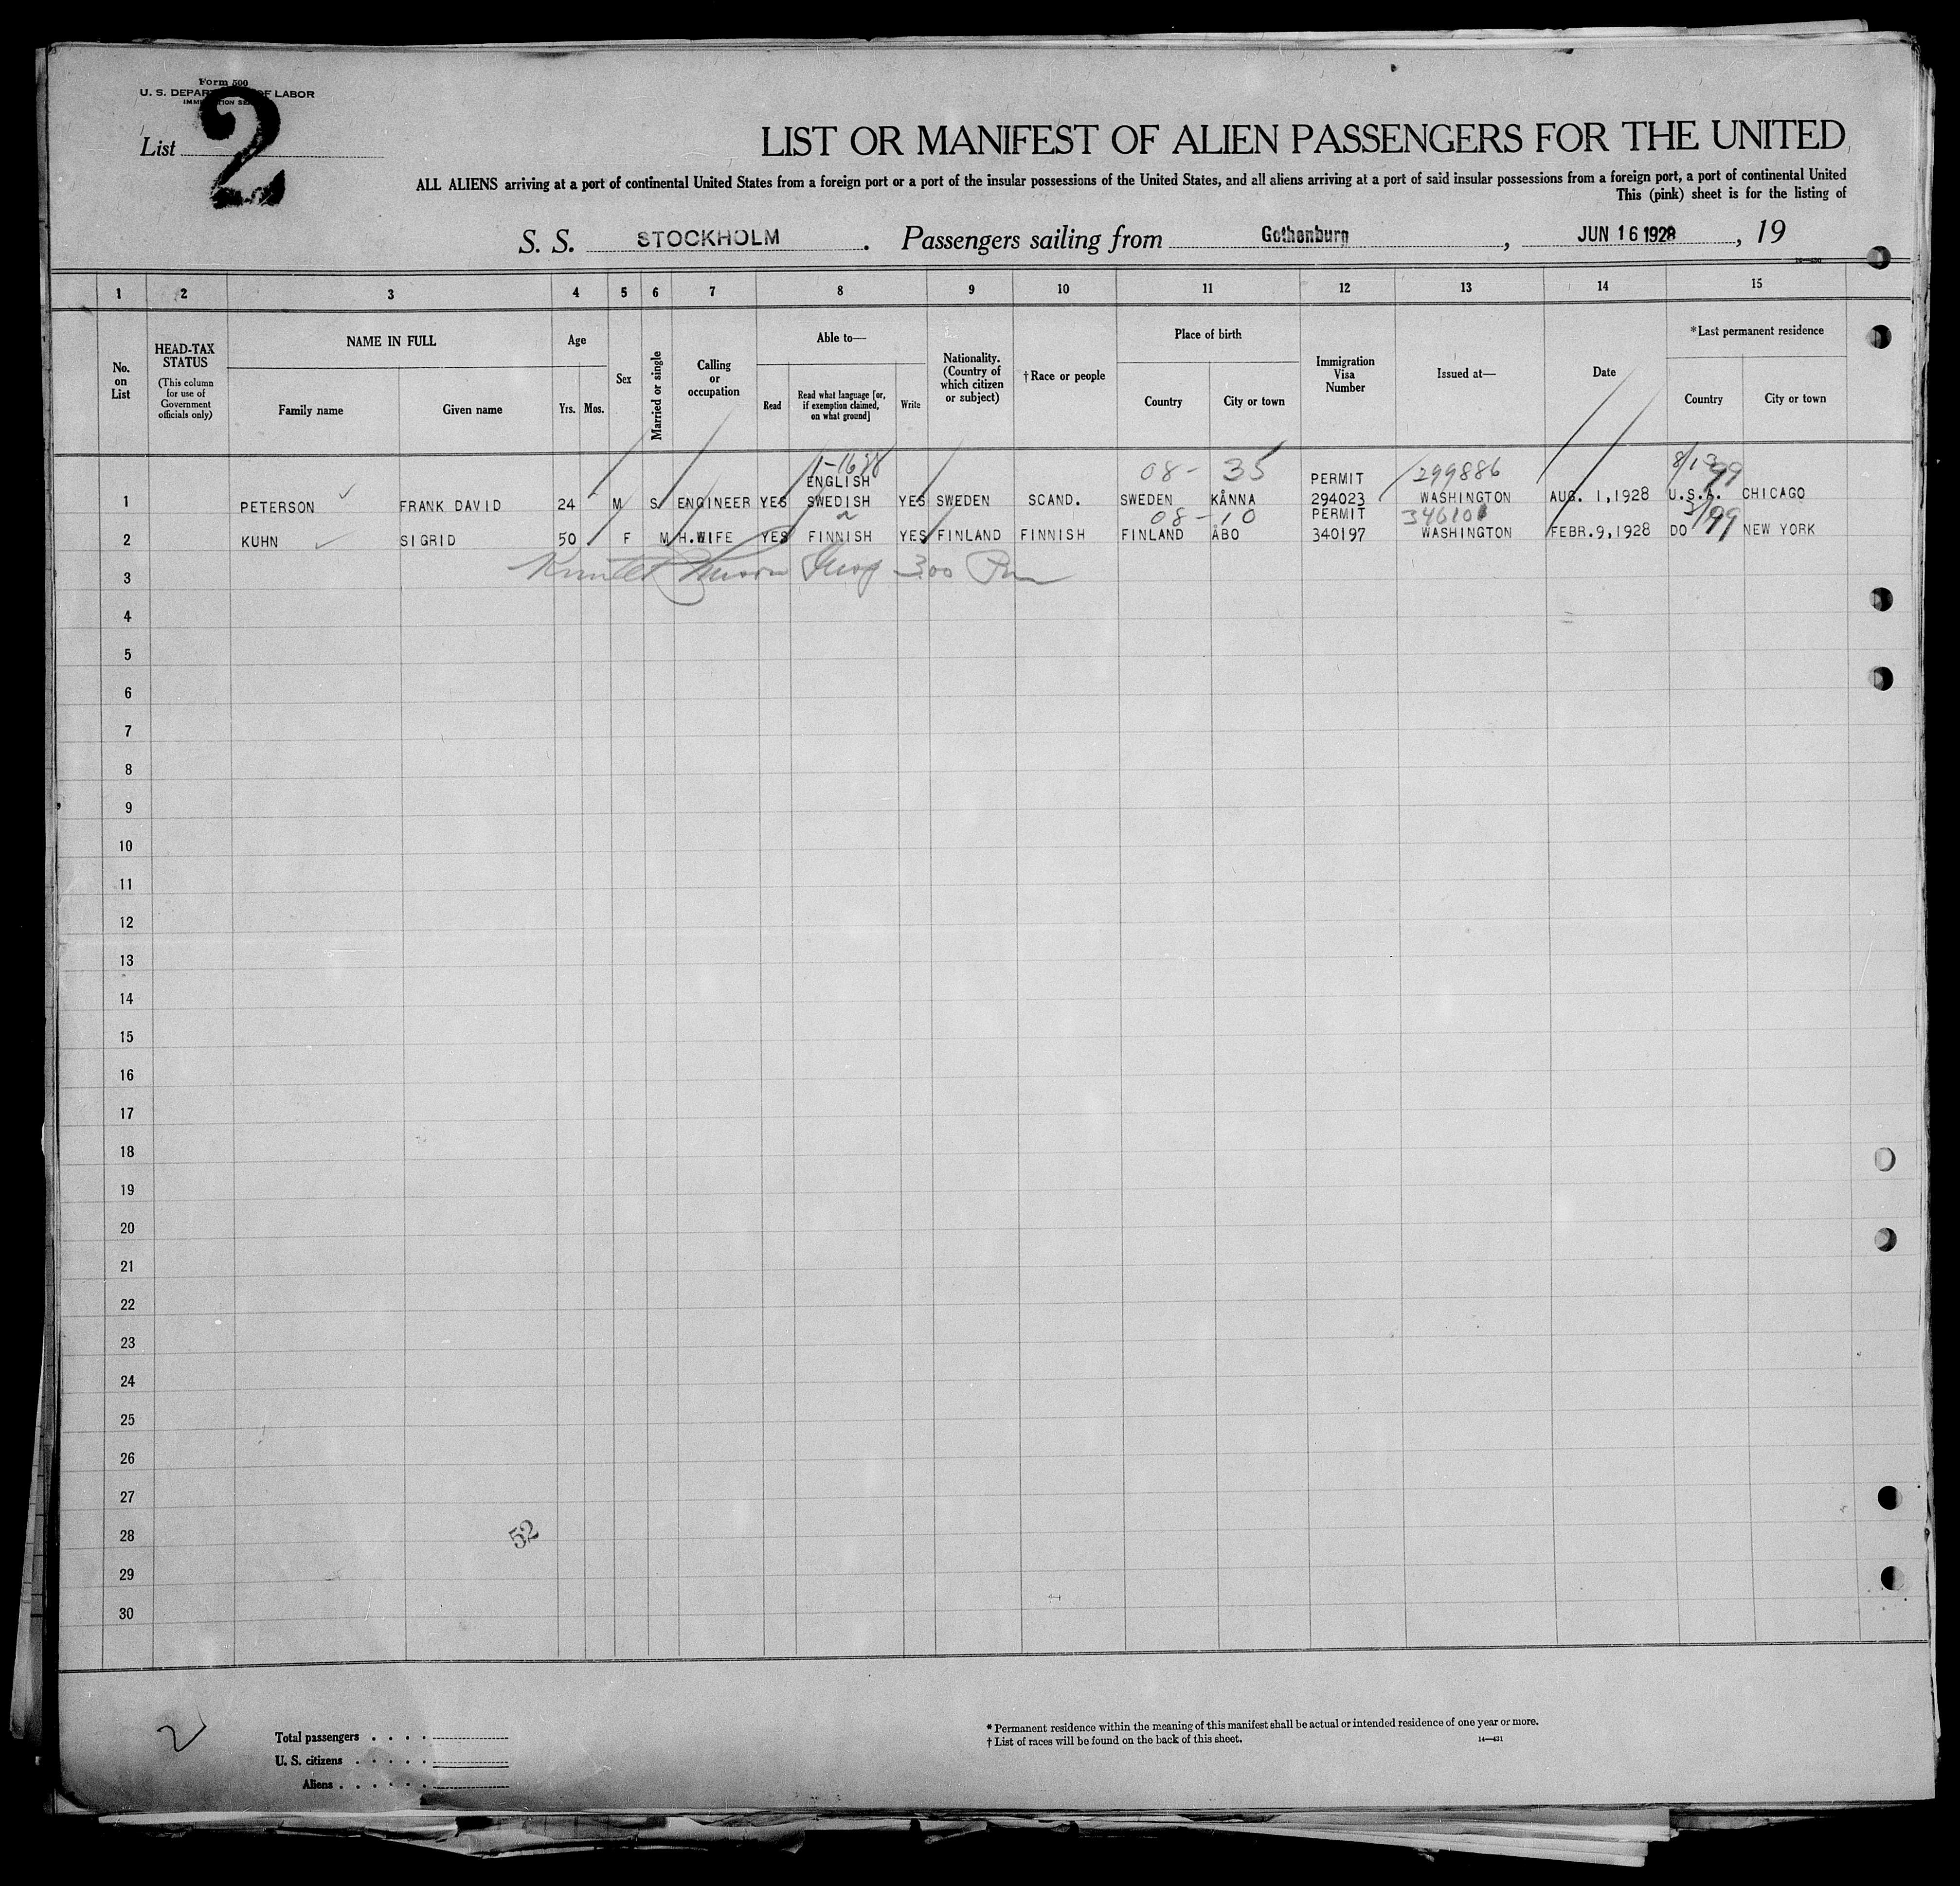 Form 500
U. S. DEPARTMENT OF LABOR
List 2
LIST OR MANIFEST OF ALIEN PASSENGERS FOR THE UNITED
ALL ALIENS arriving at a port of continental United States from a foreign port or a port of the insular possessions of the United States, and all aliens arriving at a port of said insular possessions from a foreign port, a port of continental United
This (pink) sheet is for the listing of
S. S. STOCKHOLM. Passengers sailing from Gothenburg, JUN 16 1928, 19
1 2 3 4 5 6 7 8 9 10 11 12 13 14 15
No. on List
HEAD-TAX STATUS (This column for use of Government officials only)
NAME IN FULL
Family name Given name
Age
Yrs. Mos.
Sex
Married or single
Calling or occupation
Able to—
Read Read what language [or, if exemption claimed, on what ground] Write
Nationality. (Country of which citizen or subject)
†Race or people
Place of birth
Country City or town
Immigration Visa Number
Issued at—
Date
*Last permanent residence
Country City or town
08- 35 299886 8/13 99
ENGLISH PERMIT
1 PETERSON FRANK DAVID 24 M S ENGINEER YES SWEDISH YES SWEDEN SCAND. SWEDEN KÅNNA 294023 WASHINGTON AUG. 1,1928 U.S.A. CHICAGO
08-10 PERMIT 99
2 KUHN SIGRID 50 F M H.WIFE YES FINNISH YES FINLAND FINNISH FINLAND ÅBO 340197 WASHINGTON FEBR.9,1928 DO NEW YORK
3
4
5
6
7
8
9
10
11
12
13
14
15
16
17
18
19
20
21
22
23
24
25
26
27
28 52
29
30
2
Total passengers . . . .
U. S. citizens . . . . .
Aliens . . . . . .
* Permanent residence within the meaning of this manifest shall be actual or intended residence of one year or more.
† List of races will be found on the back of this sheet.
14—431